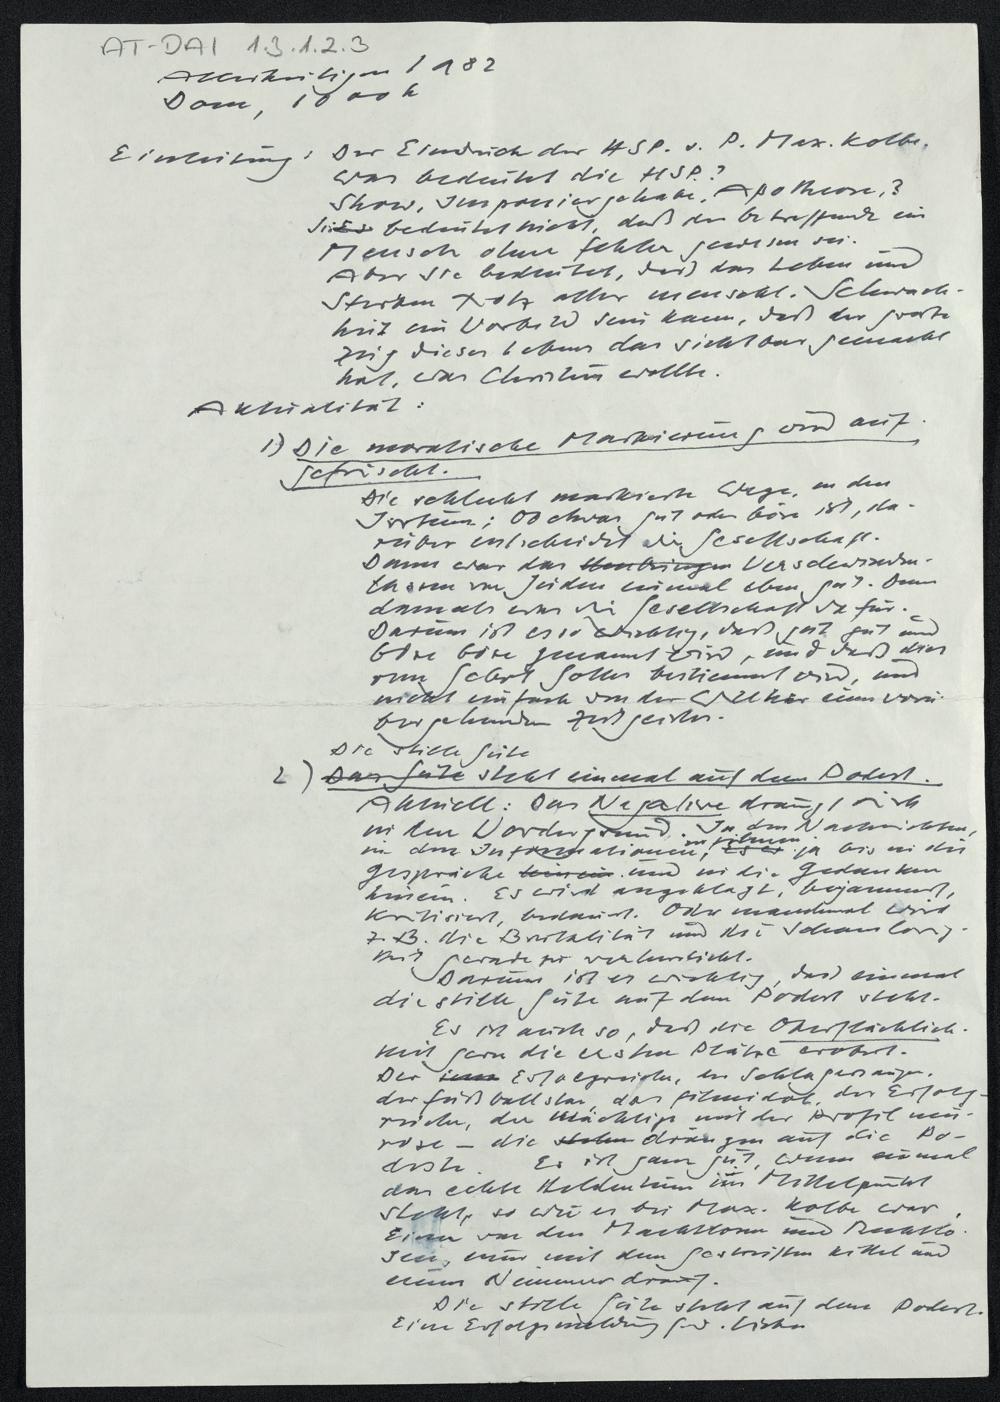 AT-DAI 1.3.1.2.3
Allerheiligen 1982
Dom, 10 00 h
Einleitung: Der Eindruck der HSP. v. P. Max. Kolbe.
was bedeutet die HSP.?
Show, Imponiergehabe, Apotheose,?
Sie bedeutet nicht, daß der betreffende ein
Mensch ohne Fehler gewesen sei.
Aber sie bedeutet, daß das Leben und
Sterben trotz aller menschl. Schwach-
heit ein Vorbild sein kann, daß der große
Zug dieses Lebens das sichtbar gemacht
hat, was Christus wollte.
Aktualität:
1) Die moralische Markierung wird auf-
gefrischt.
Die schlecht markierte Wege, in den
Irrtum; Ob etwas gut oder böse ist, da-
rüber entscheidet die Gesellschaft.
Dann war das Umbringen Verschwinden-
lassen von Juden einmal eben gut. Denn
damals war die Gesellschaft dafür.
Darum ist es so wichtig, daß gut gut und
böse böse genannt wird, und daß dies
vom Gebot Gottes bestimmt wird, und
nicht einfach von der Willkür eines vorü-
bergehenden Zeitgeistes.
Die stille Güte
2) Das Gute steht einmal auf dem Podest.
Aktuell: Das Negative drängt sich
in den Vordergrund. In den Nachrichten,
in Filmen
in den Informationen, ja bis in die
Gespräche hinein und in die Gedanken
hinein. Es wird angeklagt, bejammert,
kritisiert, bedauert. Oder manchmal wird
z. B. die Brutalität und die Schamlosig-
keit geradezu verherrlicht.
Darum ist es wichtig, daß einmal
die stille Güte auf dem Podest steht.
Es ist auch so, daß die Oberflächlich-
keit gern die ersten Plätze erobert.
Der Erfolgreiche, der Schlagersänger,
der Fußballstar, das Filmidol, der Erfolg-
reiche, der Mächtige mit der Profilneu-
rose – die stehen drängen auf die Po-
deste. Es ist ganz gut, wenn einmal
das echte Heldentum im Mittelpunkt
steht, so wie es bei Max. Kolbe war,
Einer von den Machtlosen und Rechtlo-
sen, nur mit dem gestreiften Kittel und
einer Nummer drauf.
Die stille Güte steht auf dem Podest.
Eine Erfolgsmeldung